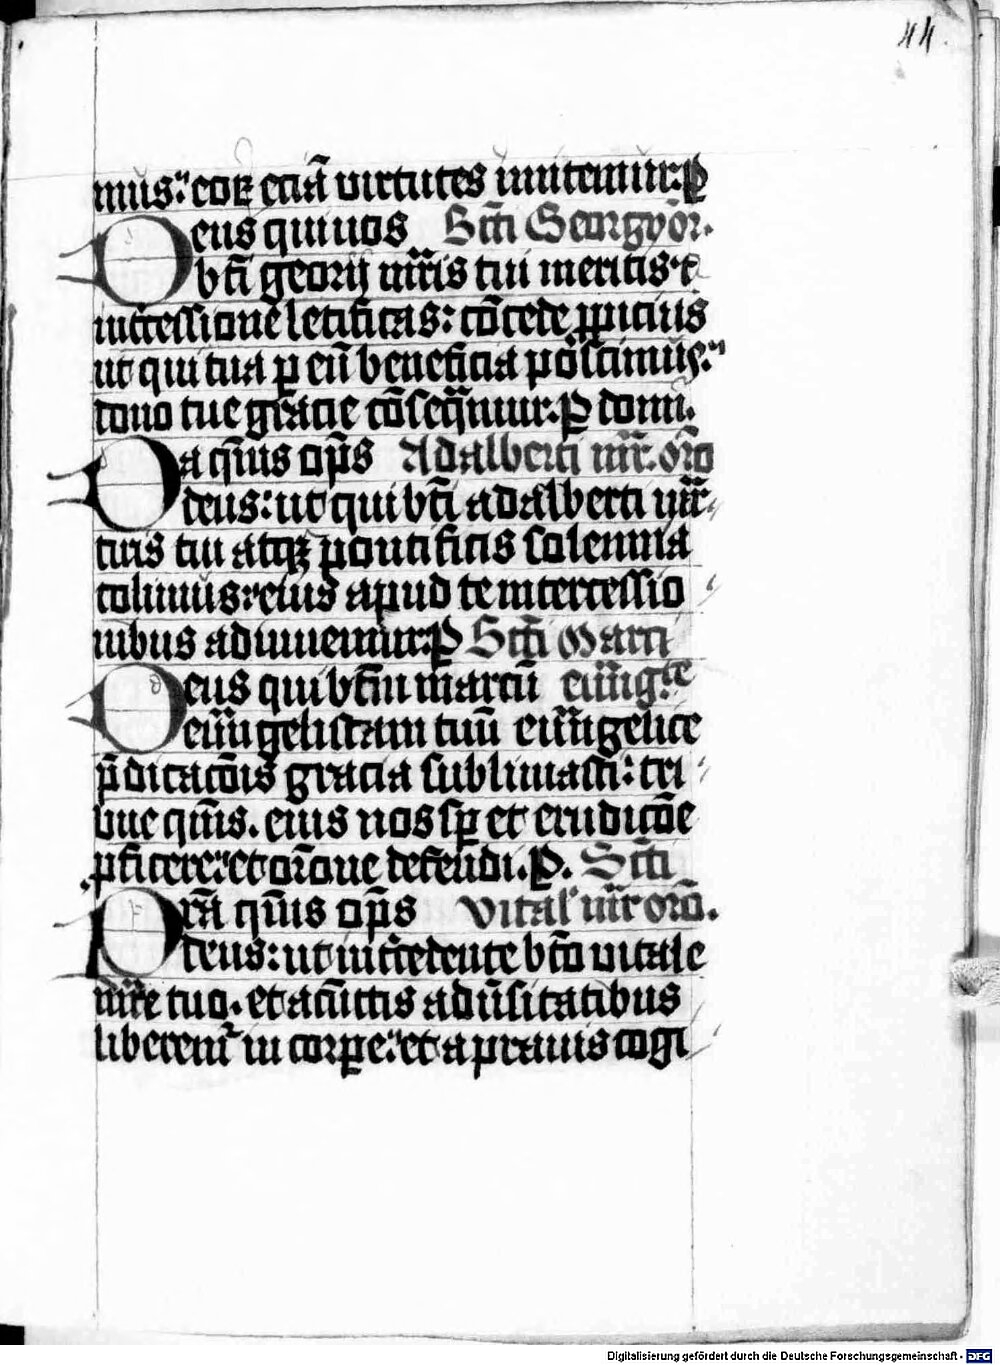 44.
mus: eorꝝ eciā virtutes imitemur. P
Deus qui nos Scti Georgy or̄.
bt̄i georij mr̄is tui meritis ⁊
int̄cessione letificas: cōcede ꝓpicius
ut qui tua ꝑ eū beneficia poscimus:
dono tue gracie cōseqͣmur. P domi.
Da qͣs om̄ps Adalberti mr̄. or̄o
deus: ut qui bt̄i adalberti mr̄
tiris tui atqꝫ pontificis solennia
colimus: eius apud te intercessio
nibus adiuuemur. P Scti Marci
Deus qui bt̄m marcū ewͣngͤte
ewͣngelistam tuū ewͣngelice
p̄dicacōis gracia sublimasti: tri
bue qͣs. eius nos sꝑ et erudicōe
ꝓficere: et or̄one defendi. P. Scti
Pr̄a qͣs om̄ps Vital' mr̄ or̄o.
deus: ut int̄cedente bt̄o vitale
mr̄e tuo. et a cūctis adūsitatibus
liberem̄ in corꝑe: et a prauis cogi
Digitalisierung gefördert durch die Deutsche Forschungsgemeinschaft - DFG